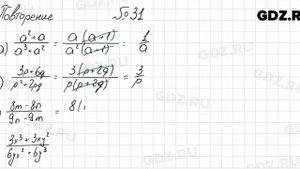 Повторение №31 GDZ.RU
а) (a²+a)/(a³+a²) = a(a+1)/a²(a+1) = 1/a
(3p+6q)/(p²+2pq) = 3(p+2q)/p(p+2q) = 3/p
(8m-8n)/(9n-9m) = 8(
(3x³+3xy²)/(6yx²+6y³)
GDZ.RU